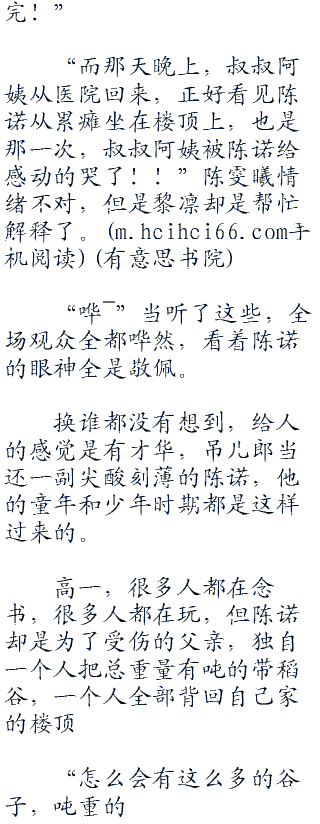 完！”
“而那天晚上，叔叔阿
姨从医院回来，正好看见陈
诺从累瘫坐在楼顶上，也是
那一次，叔叔阿姨被陈诺给
感动的哭了！！”陈雯曦情
绪不对，但是黎凛却是帮忙
解释了。(m.hcihci66.com手
机阅读)(有意思书院)
“哗¯”当听了这些，全
场观众全都哗然，看着陈诺
的眼神全是敬佩。
换谁都没有想到，给人
的感觉是有才华，吊儿郎当
还一副尖酸刻薄的陈诺，他
的童年和少年时期都是这样
过来的。
高一，很多人都在念
书，很多人都在玩，但陈诺
却是为了受伤的父亲，独自
一个人把总重量有吨的带稻
谷，一个人全部背回自己家
的楼顶
“怎么会有这么多的谷
子，吨重的